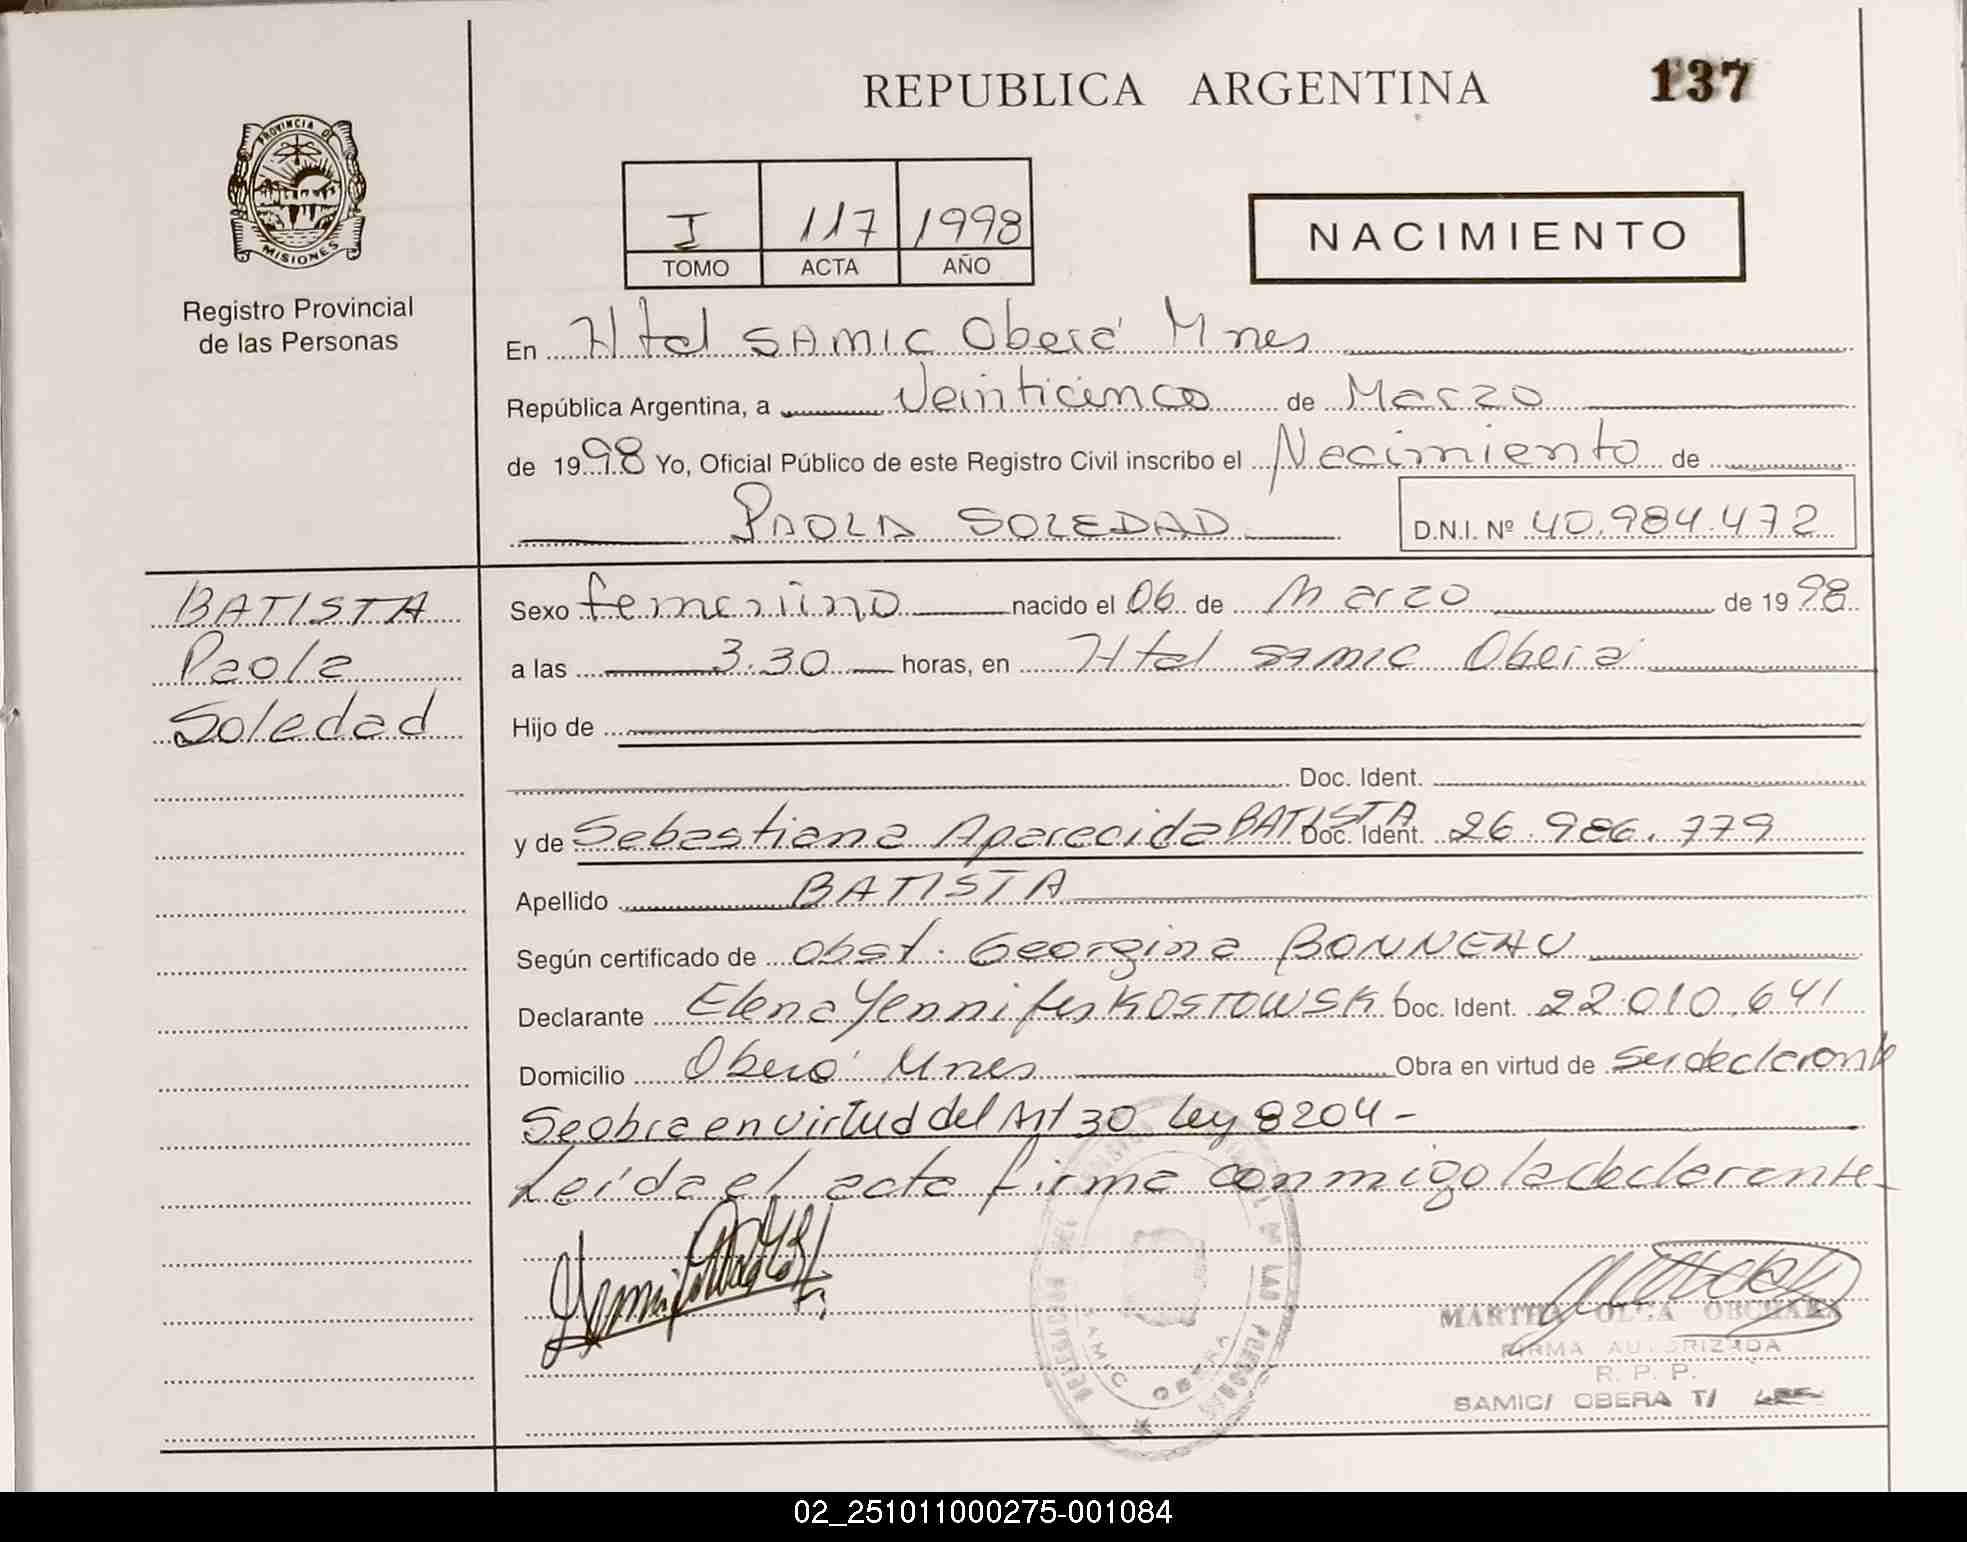 REPUBLICA ARGENTINA
137
PROVINCIA DE
MISIONES
Registro Provincial
de las Personas
I 117 1998
TOMO ACTA AÑO
NACIMIENTO
En Htal SAMIC Oberá Mnes
República Argentina, a Veinticinco de Marzo
de 1998 Yo, Oficial Público de este Registro Civil inscribo el Nacimiento de
PAOLA SOLEDAD D.N.I. Nº 40.984.472
BATISTA
Paola
Soledad
Sexo femenino nacido el 06 de Marzo de 1998
a las 3.30 horas, en Htal SAMIC Oberá
Hijo de
Doc. Ident.
y de Sebastiana Aparecida BATISTA Doc. Ident. 26.986.779
Apellido BATISTA
Según certificado de Obst. Georgina BONNEAU
Declarante Elena Yennifer KOSTOWSKI Doc. Ident. 22.010.641
Domicilio Oberá Mnes Obra en virtud de ser declarante
Se obra en virtud del Art 30 Ley 8204-
Leída el acta firma conmigo la declarante
MARTHA OLGA
FIRMA AUTORIZADA
R. P. P.
SAMIC/ OBERA T/
SAMIC OBERA
02_251011000275-001084